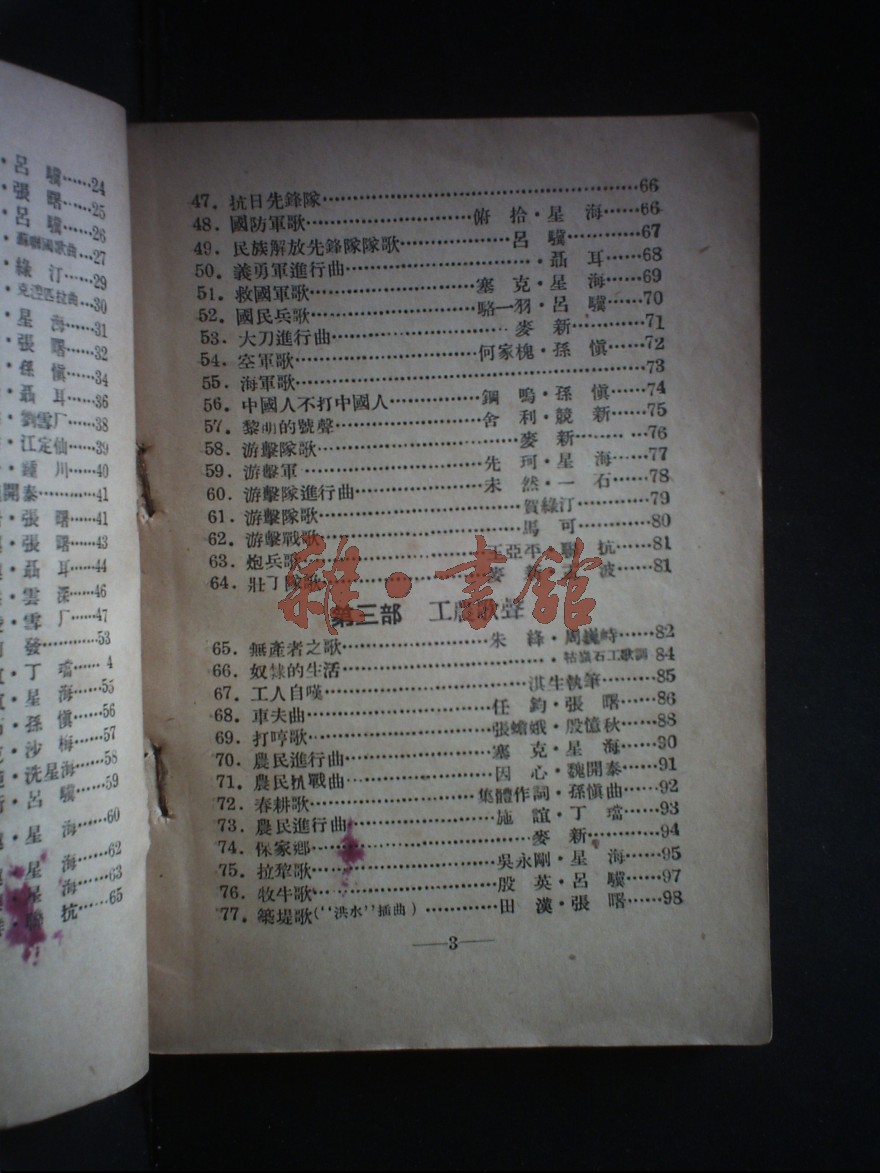 呂 驥……24
張 曙……25
呂 驥……26
蘇聯國歌曲…27
綠 汀……29
克涅匹拉曲…30
星 海……31
張 曙……32
孫 愼……34
聶 耳……36
劉雪厂…38
江定仙……39
鍾 川……40
開泰………41
張 曙……41
張 曙……43
聶 耳……44
雲 深……46
雪 厂……47
發……53
丁 璫… 4
星 海……55
孫 愼……56
沙 梅……57
冼星海……58
呂 驥……59
星 海……60
星 海……62
星 海……63
聯 抗……65
47．抗日先鋒隊……66
48．國防軍歌……俯 拾・星 海……66
49．民族解放先鋒隊隊歌……呂 驥……67
50．義勇軍進行曲……聶 耳……68
51．救國軍歌……塞 克・星 海……69
52．國民兵歌……駱一羽・呂 驥……70
53．大刀進行曲……麥 新……71
54．空軍歌……何家槐・孫 愼……72
55．海軍歌……73
56．中國人不打中國人……鋼 鳴・孫 愼……74
57．黎明的號聲……舍 利・競 新……75
58．游擊隊歌……麥 新……76
59．游擊軍……先 珂・星 海……77
60．游擊隊進行曲……未 然・一 石……78
61．游擊隊歌……賀綠汀……79
62．游擊戰歌……馬 可……80
63．炮兵歌……王亞平・聯 抗……81
64．壯丁隊歌……麥 新・孟 波……81
第三部 工農歌聲
65．無產者之歌……朱 絳・周巍峙……82
66．奴隸的生活……牯嶺石工歌調 84
67．工人自嘆……淇生執筆……85
68．車夫曲……任 鈞・張 曙……86
69．打哼歌……張蟾娥・殷憶秋……88
70．農民進行曲……塞 克・星 海……90
71．農民抗戰曲……因 心・魏開泰……91
72．春耕歌……集體作詞・孫愼曲……92
73．農民進行曲……施 誼・丁 璫……93
74．保家鄉……麥 新……94
75．拉犂歌……吳永剛・星 海……95
76．牧牛歌……殷 英・呂 驥……97
77．築堤歌（''洪水''插曲）……田 漢・張 曙……98
——3——
雜・書館